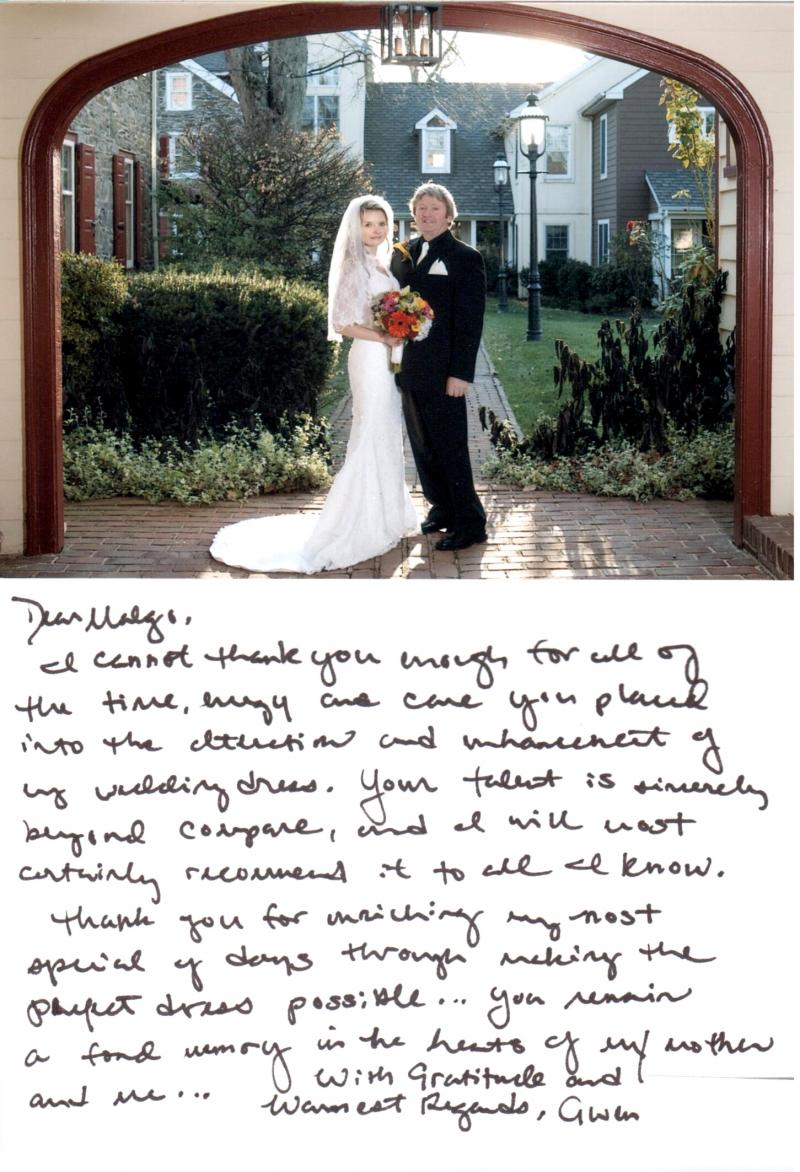 Dear Malgo,
I cannot thank you enough for all of
the time, energy and care you placed
into the alteration and enhancement of
my wedding dress. Your talent is sincerely
beyond compare, and I will most
certainly recommend it to all I know.
Thank you for enriching my most
special of days through making the
perfect dress possible... You remain
a fond memory in the hearts of my mother
and me...
With Gratitude and
Warmest Regards, Gwen